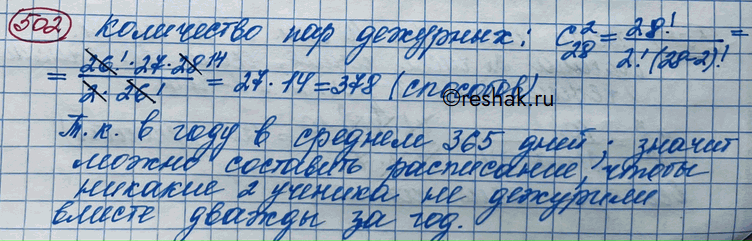 502 Количество пар дежурных: C²₂₈ = 28! / 2!(28-2)! =
= 26!·27·28 14 / 2·26! = 27·14 = 378 (способов)
©reshak.ru
Т.к. в году в среднем 365 дней, значит
можно составить расписание, чтобы
никакие 2 ученика не дежурили
вместе дважды за год.